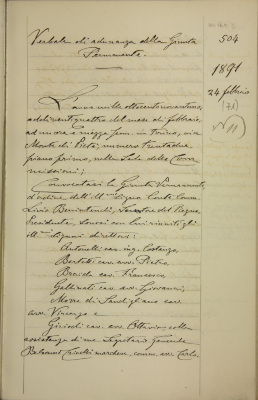 Verbale di adunanza della Giunta
Permanente.
504
1891
24 febbraio
(71)
N 11
L'anno mille ottocento novantuno,
addì ventiquattro del mese di febbraio
ad ore due e mezza pom. in Torino, via
Monte di Pietà, numero trentadue
piano primo, nella Sala delle Com
missioni;
Convocatasi la Giunta Permanente,
d'ordine dell' Ill.mo Signor Conte Comm.
Livio Benintendi, Senatore del Regno,
Presidente, sonosi con lui riuniti gli
Ill.mi Signori direttori:
Antonelli cav. ing. Costanzo,
Bertetti cav. avv. Pietro
cav. Francesco
cav. avv. Giovanni,
Marca di cav.
avv. Vincenzo e
cav. avv. Ottavio colla
assistenza di me Segretario Generale
marchese, comm. avv. Carlo.